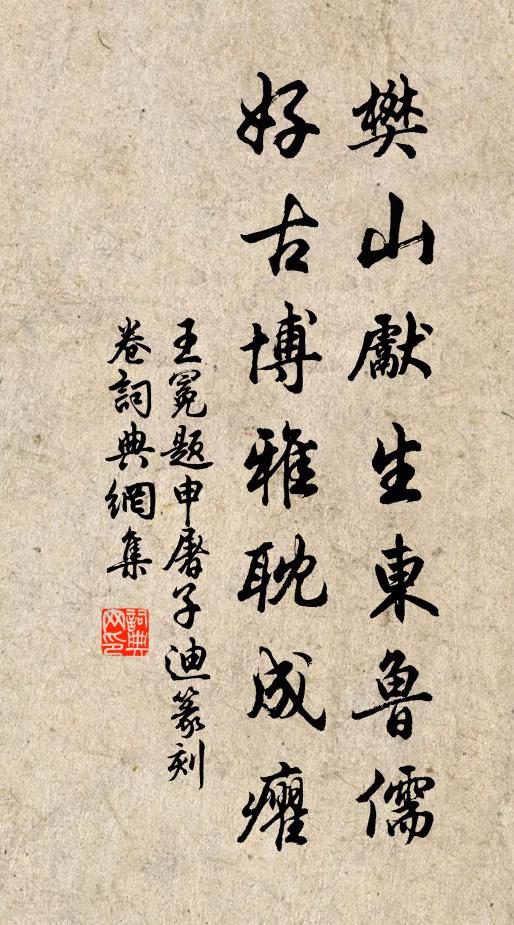 樊山獻生東魯儒
好古博雅耽成癯
王冕題申屠子迪篆刻
卷詞典網集
詞典網印